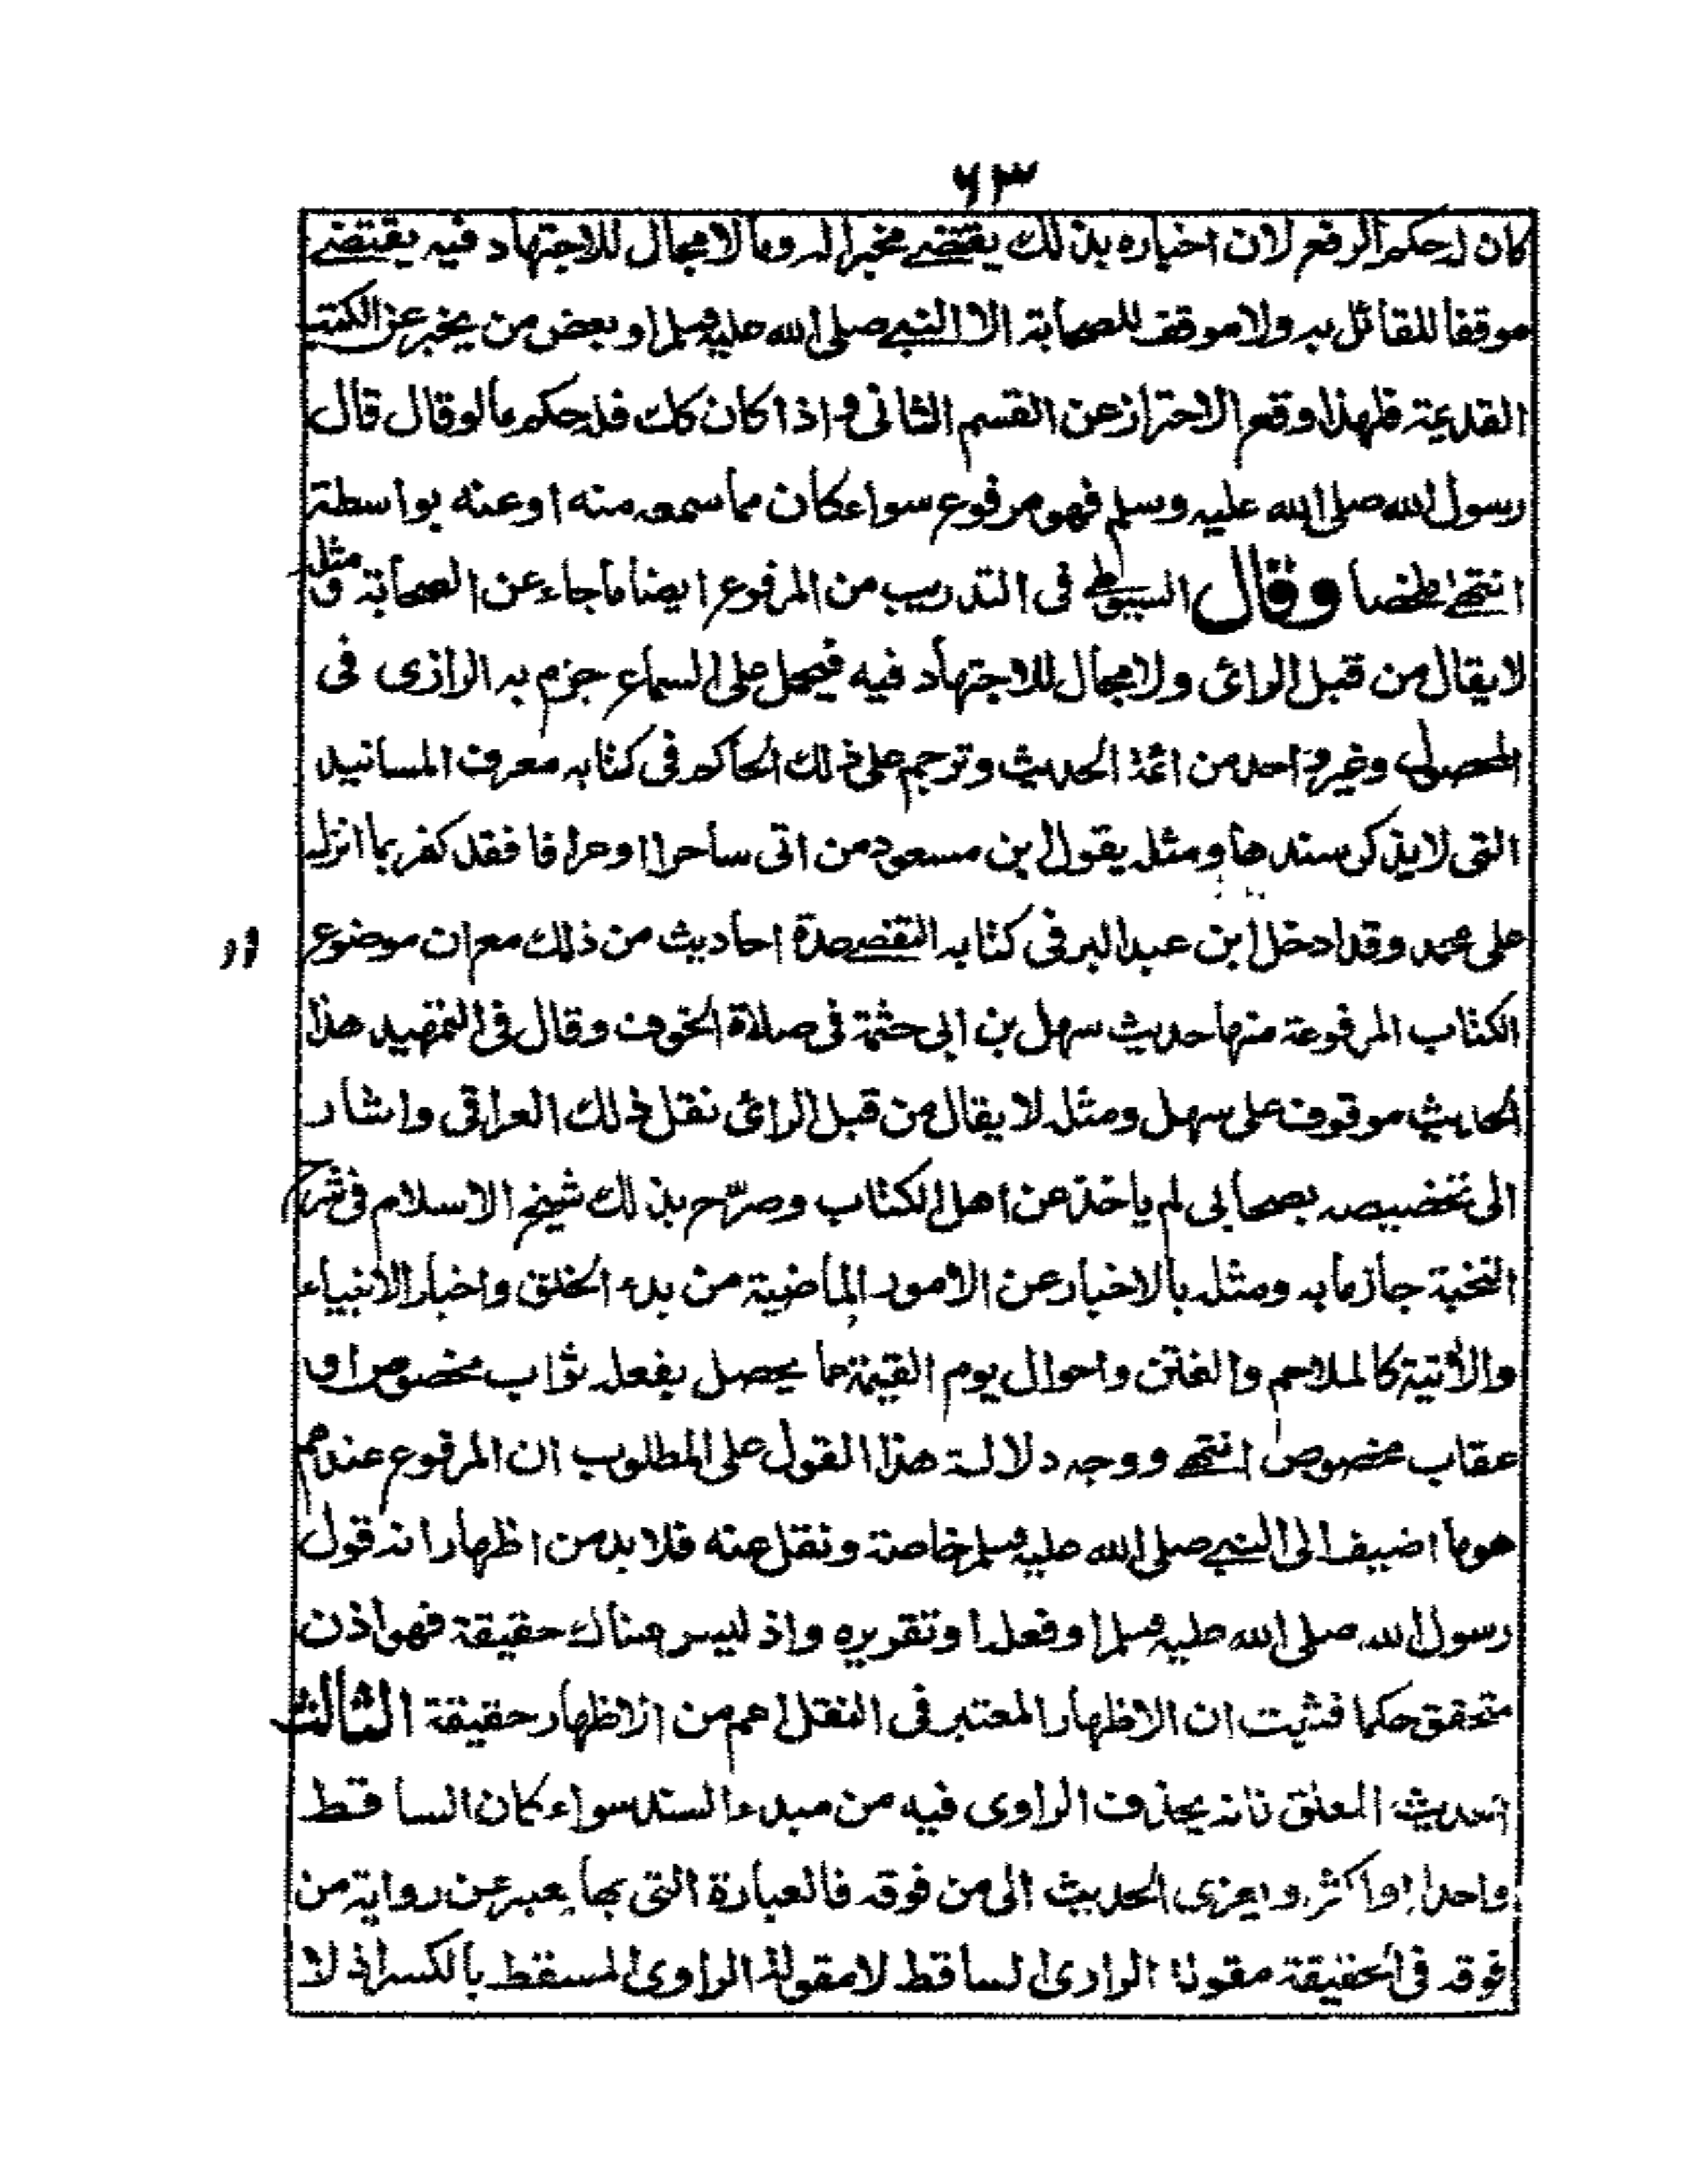 ٦٣
كان له حكم الرفع لان اخباره بذلك يقتضي مخبرا له وما لا مجال للاجتهاد فيه يقتضي
موقفا للقائل به ولا موقف للصحابة الا النبي صلى الله عليه وسلم او بعض من يخبر عن الكتب
القديمة فلهذا وقع الاحتراز عن القسم الثانى و اذا كان كك فله حكم ما لو قال قال
رسول الله صلى الله عليه وسلم فهو مرفوع سواء كان مما سمعه منه او عنه بواسطة
انتهى ملخصا وقال السيوطى فى التدريب من المرفوع ايضا ما جاء عن الصحابة و مثله
لا يقال من قبل الرائ ولا مجال للاجتهاد فيه فيحمل على السماع جزم به الرازى فى
المحصول وغير واحد من ائمة الحديث وترجم على ذلك الحاكم فى كتابه معرفة المسانيد
التى لا يذكر سندها ومثله بقول ابن مسعود من اتى ساحرا او عرافا فقد كفر بما انزل
على محمد وقد ادخل ابن عبد البر فى كتابه التقصى عدة احاديث من ذلك مع ان موضوع
الكتاب المرفوعة منها حديث سهل بن ابى حثمة فى صلاة الخوف وقال فى التمهيد هذا
الحديث موقوف على سهل ومثله لا يقال من قبل الرائ نقل ذلك العراقى واشار
الى تخصيصه بصحابى لم ياخذ عن اهل الكتاب وصرّح بذلك شيخ الاسلام فى شرح
النخبة جازما به ومثله بالاخبار عن الامور الماضية من بدء الخلق واخبار الانبياء
والآتية كالملاحم والفتن واحوال يوم القيمة عما يحصل بفعله ثواب مخصوص او
عقاب مخصوص انتهى ووجه دلالة هذا القول على المطلوب ان المرفوع عندهم
هو ما اضيف الى النبي صلى الله عليه وسلم خاصة ونقل عنه فلا بد من اظهار انه قول
رسول الله صلى الله عليه وسلم او فعله او تقريره واذ ليس هناك حقيقة فهو اذن
متحقق حكما فثبت ان الاظهار المعتبر فى النقل اعم من الاظهار حقيقة الثالث
الحديث المعلق فانه يحذف الراوى فيه من مبدء السند سواء كان الساقط
واحدا او اكثر ويعزى الحديث الى من فوقه فالعبارة التى بها يعبر عن رواية من
فوقه فى الحقيقة مقولة الراوى الساقط لا مقولة الراوى المسقط بالكسر اذ لا